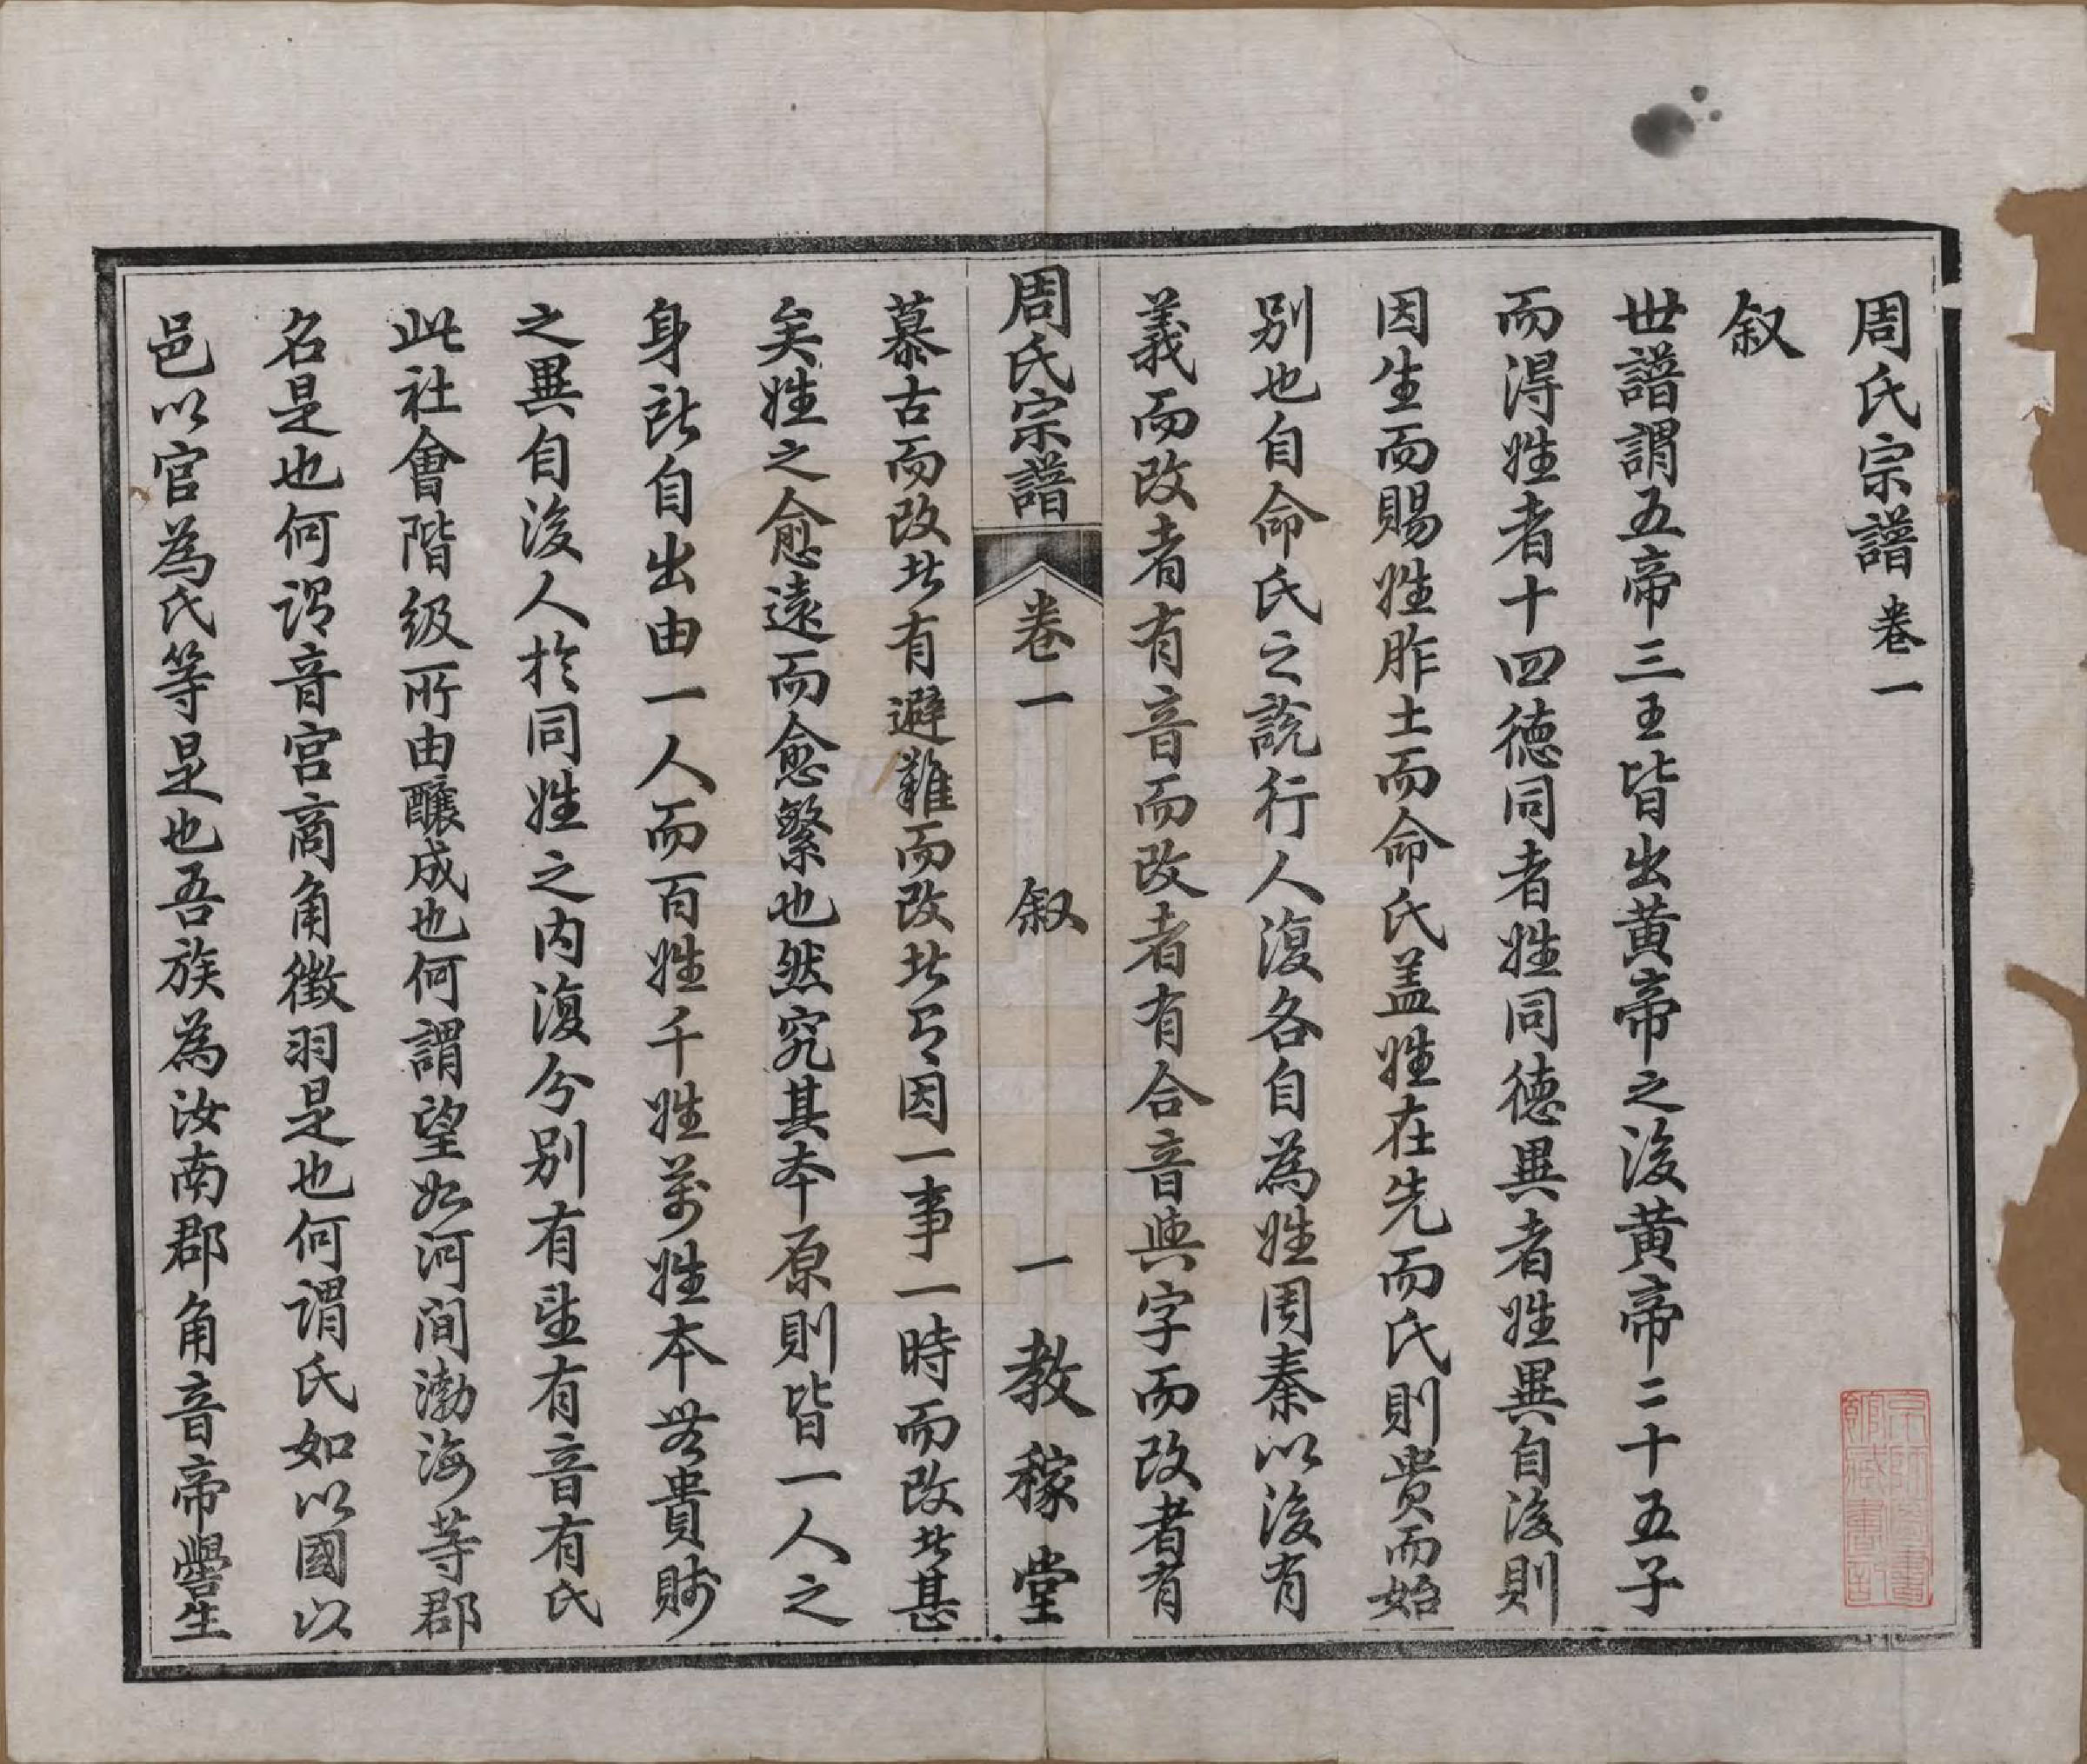 周氏宗譜 卷一
叙
世譜謂五帝三王皆出黄帝之後黄帝二十五子
而得姓者十四德同者姓同德異者姓異自後則
因生而賜姓胙土而命氏盖姓在先而氏則贵而始
别也自命氏之說行人復各自為姓周秦以後有
義而改者有音而改者有合音與字而改者有
周氏宗譜 卷一 叙 一 教稼堂
慕古而改此有避難而改此乃因一事一時而改此甚
矣姓之愈遠而愈繁也然究其本原則皆一人之
身所自出由一人而百姓千姓萬姓本無貴賤
之異自後人於同姓之内復分别有望有音有氏
此社會階級所由釀成也何謂望如河间渤海等郡
名是也何謂音宫商角徵羽是也何謂氏如以國以
邑以官為氏等是也吾族為汝南郡角音帝嚳生
京師圖書
館藏書記